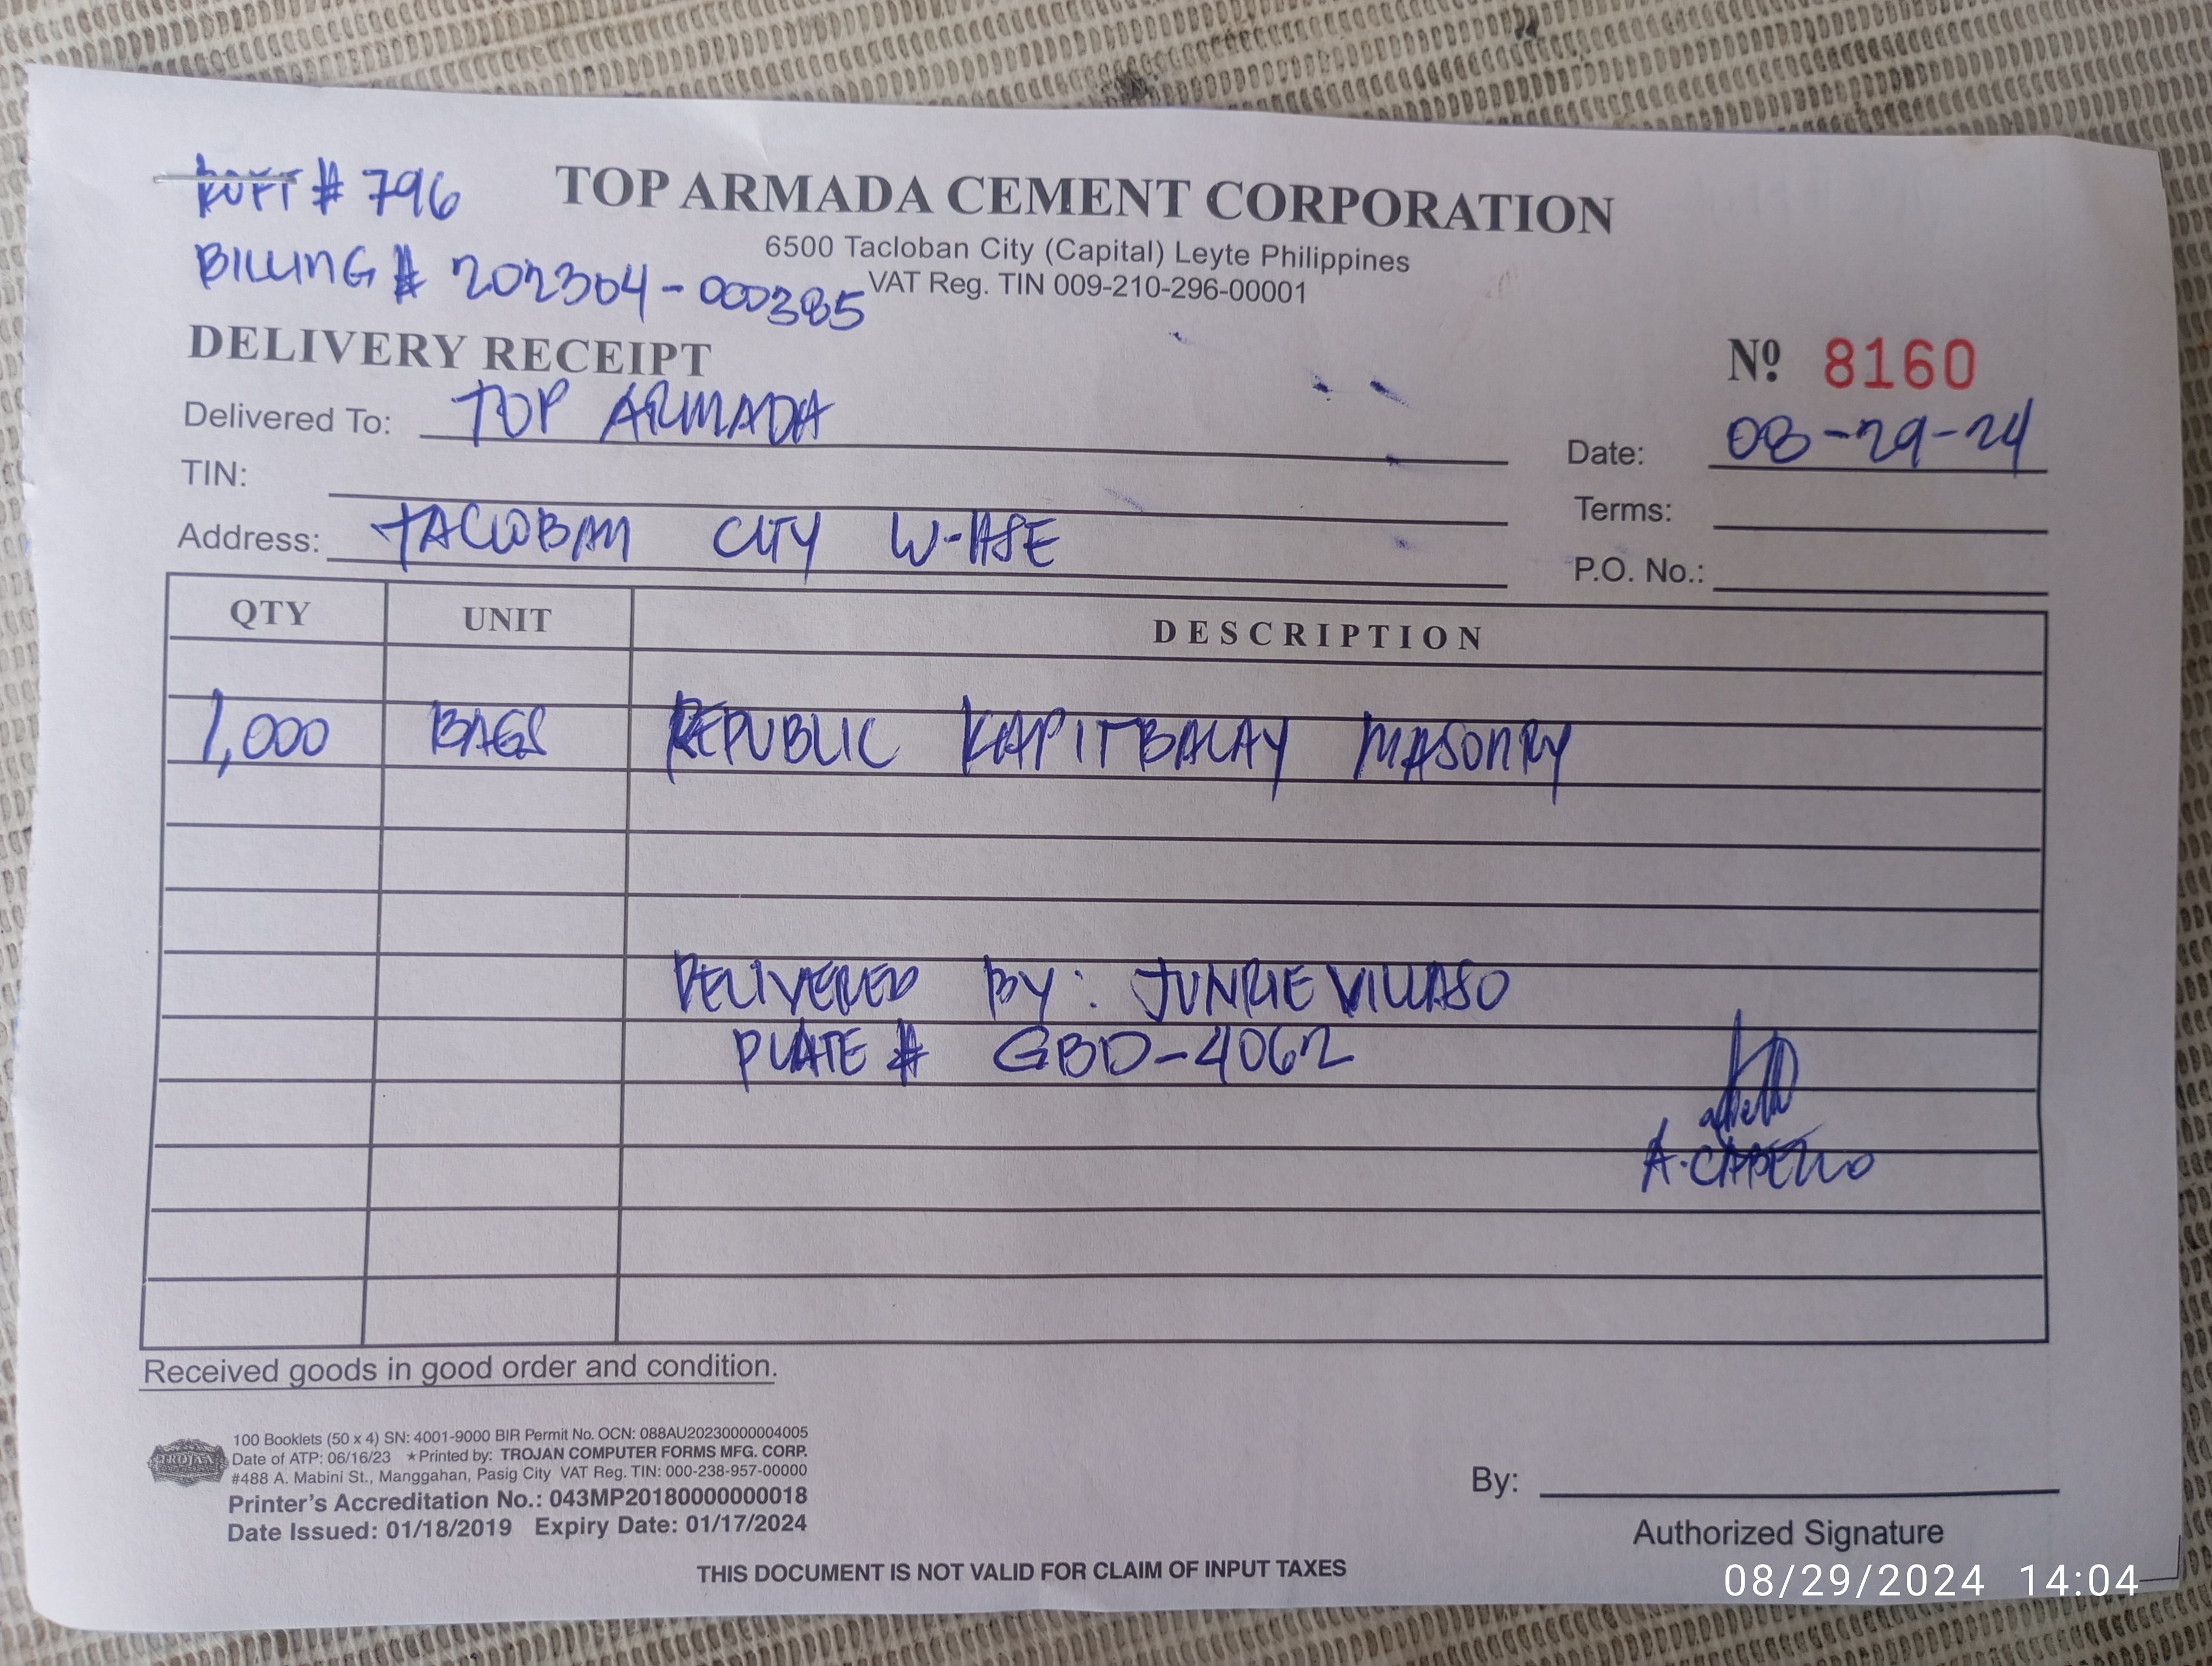 # 796
TOP ARMADA CEMENT CORPORATION
6500 Tacloban City (Capital) Leyte Philippines
VAT Reg. TIN 009-210-296-00001
BILLING # 202304-000385
DELIVERY RECEIPT
Nº 8160
Delivered To: TOP ARMADA
Date: 08-29-24
TIN:
Terms:
Address: TACLOBAN CITY W-HSE
P.O. No.:
QTY UNIT DESCRIPTION
1,000 BAGS REPUBLIC KAPITBALAY MASONRY
DELIVERED BY: JUNRIE VILLASO
PLATE # GBD-4062
Received goods in good order and condition.
TROJAN
100 Booklets (50 x 4) SN: 4001-9000 BIR Permit No. OCN: 088AU20230000004005
Date of ATP: 06/16/23 ★Printed by: TROJAN COMPUTER FORMS MFG. CORP.
#488 A. Mabini St., Manggahan, Pasig City VAT Reg. TIN: 000-238-957-00000
Printer's Accreditation No.: 043MP20180000000018
Date Issued: 01/18/2019 Expiry Date: 01/17/2024
By:
Authorized Signature
THIS DOCUMENT IS NOT VALID FOR CLAIM OF INPUT TAXES
08/29/2024 14:04